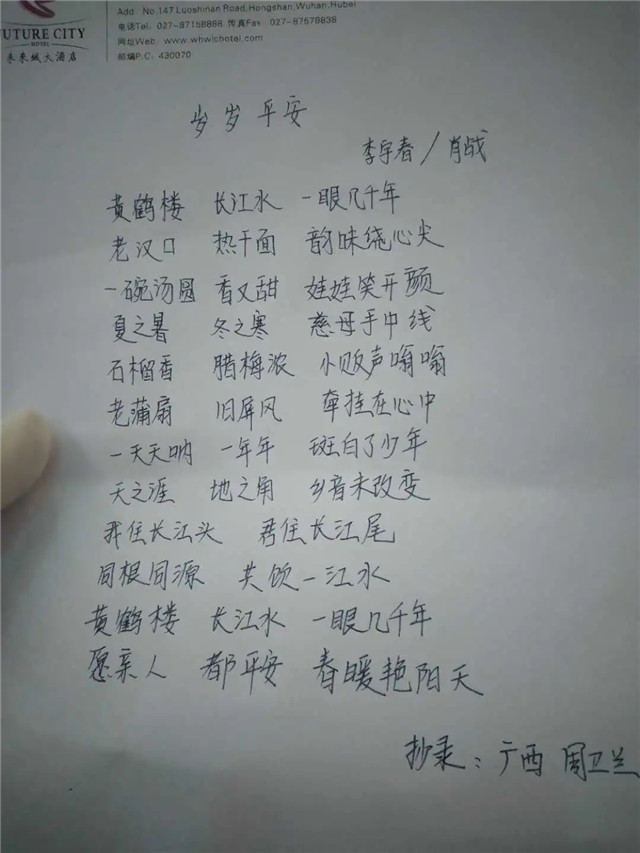 FUTURE CITY
HOTEL
未来城大酒店
Add. No.147,Luoshinan Road,Hongshan,Wuhan,Hubei
电话Tel: 027-87158888 传真Fax: 027-87678838
网址Web: www.whwlchotel.com
邮编P.C: 430070
岁岁平安
李宇春/肖战
黄鹤楼 长江水 一眼几千年
老汉口 热干面 韵味绕心尖
一碗汤圆 香又甜 娃娃笑开颜
夏之暑 冬之寒 慈母手中线
石榴香 腊梅浓 小贩声嗡嗡
老蒲扇 旧屏风 牵挂在心中
一天天呐 一年年 斑白了少年
天之涯 地之角 乡音未改变
我住长江头 君住长江尾
同根同源 共饮一江水
黄鹤楼 长江水 一眼几千年
愿亲人 都平安 春暖艳阳天
抄录:广西 周卫兰